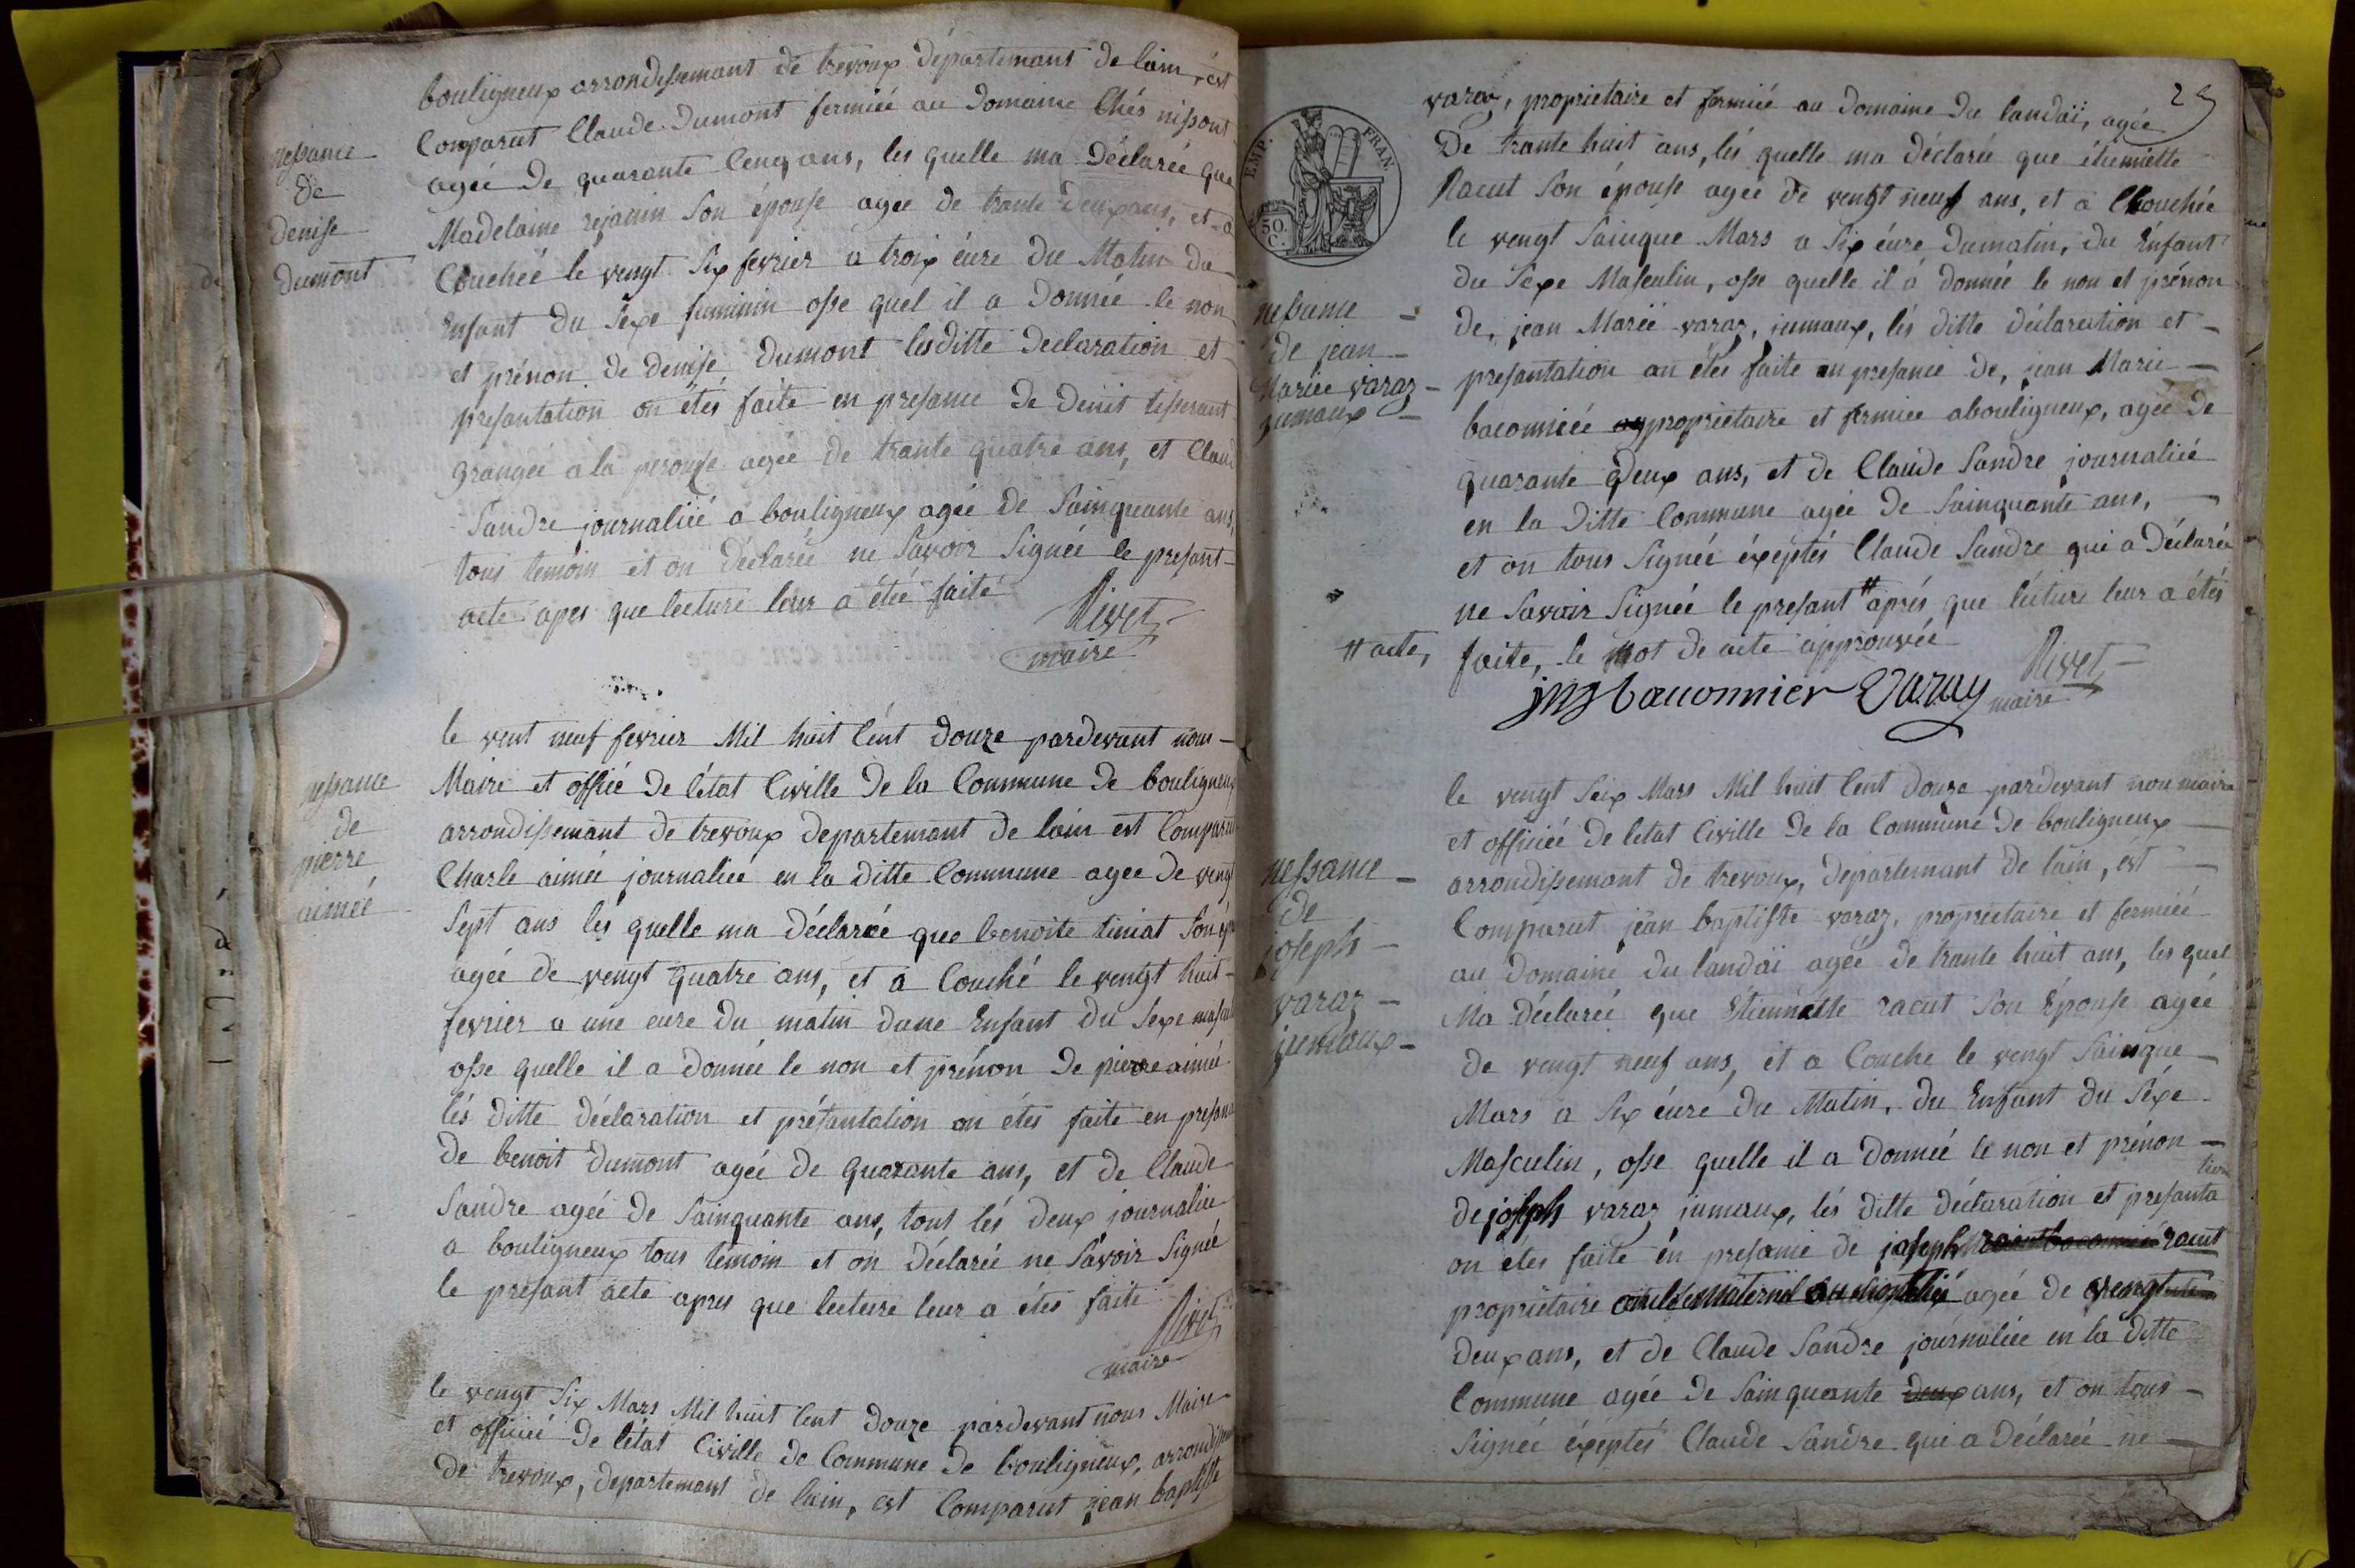 bouligneux arrondissemant de trevoux départemant de lain, est
Comparut Claude Dumont fermiéé au Domaine Chés nissont
agéé de quarante Cenq ans, les quelle ma Déclaréé que
Madelaine rejanin son épouse agee de trante deux ans, et a
Couchéé le vengt Six fevrier a troix éure du Matin du
Enfant du Sexe feminin osse quel il a Donnéé le non
et prénon de denise Dumont lesditte Declaration et
presantation on étés faite en presance de denit tisserant
grangée a la perouse agéé de trante quatre ans, et Claude
Sandre journaliéé a bouligneux agéé de Sainquante ans,
tous temoin et on Déclaréé ne Savoir Signéé le presant
acte apes que lecture leur a étéé faite
Rivet
maire
nessance
de
denise
dumont
le vent neuf fevrier Mil huit Cent Douze pardevant nous
Maire et offiéé de létat Civille de la Commune de bouligneux
arrondissemant de trevoux departemant de lain est Comparut
Charle aimée journaliéé en la ditte Commune agee de vengt
Sept ans lés quelle ma Déclaréé que benoite timiat Son
agéé de vengt quatre ans, et a Couché le vengt huit
fevrier a une eure du matin dune Enfant du Sexe
osse quelle il a donnéé le non et prénon de pierre aimée
lés ditte déclaration et présantation on étés faite en
de benoit dumont agéé de quarante ans, et de Claude
Sandre agéé de Sainquante ans, tout lés deux journaliéé
a bouligneux tous temoin et on Déclaréé ne Savoir Signéé
le presant acte apres que lecture leur a étés faite
Rivet
maire
nessance
de
pierre
aimée
le vengt Six Mars Mil huit Cent Douze pardevant nous Maire
et officiéé de létat Civille de Commune de bouligneux,
de trevoux, departemant de lain, est Comparut jean baptiste
25
varaz, proprietaire et fermiéé au Domaine du landaii, agéé
De trante huit ans, lés quelle ma déclaréé que étiennette
Racut Son épouse agee de vengt neuf ans, et a Couchéé
le vengt Sainque Mars a Six éure dumatin, du Enfant
du Sexe Masculin, osse quelle il a donnéé le non et prénon
de, jean Marie varaz, jumaux, lés ditte déclaration et
presantation on étés faite en presance de, jean Marie
baconniéé proprietaire et fermiee abouligneux, agéé de
quarante Deux ans, et de Claude Sandre journaliéé
en la Ditte Commune agéé de Sainquante ans,
et on tous Signéé éxéptés Claude Sandre qui a Déclaréé
ne Savoir Signéé le presant # aprés que lécture leur a étés
# acte, faite, le Mot de acte approuvéé
Rivet
maire
jm baconnier Varay
EMP. FRAN.
50
C.
nessance
de jean
Mariée varaz
jumaux
le vengt Seix Mars Mil huit Cent Douze pardevant nou maire
et officiéé de letat Civille de la Commune de bouligneux
arrondissemant de trevoux, departemant de lain, est
Comparut jean baptiste varaz, proprietaire et fermiéé
au Domaine du landaï agéé de trante huit ans, les quel
Ma Déclaréé que Etiennette racut Son Epouse agéé
de vengt neuf ans, et a Couche le vengt Sainque
Mars a Six éure du Matin, du Enfant du Séxe
Masculin, osse quelle il a Donnéé le non et prénon
de joseph varaz jumaux, lés ditte déclaration et presanta
tion
on étés faite en presance de joseph racut
propriétaire agéé de vengt
Deux ans, et de Claude Sandre journaliéé en la Ditte
Commune agéé de Sainquante deux ans, et on tous
Signéé éxéptés Claude Sandre qui a Déclaréé ne
nessance
de
joseph
varaz
jumaux